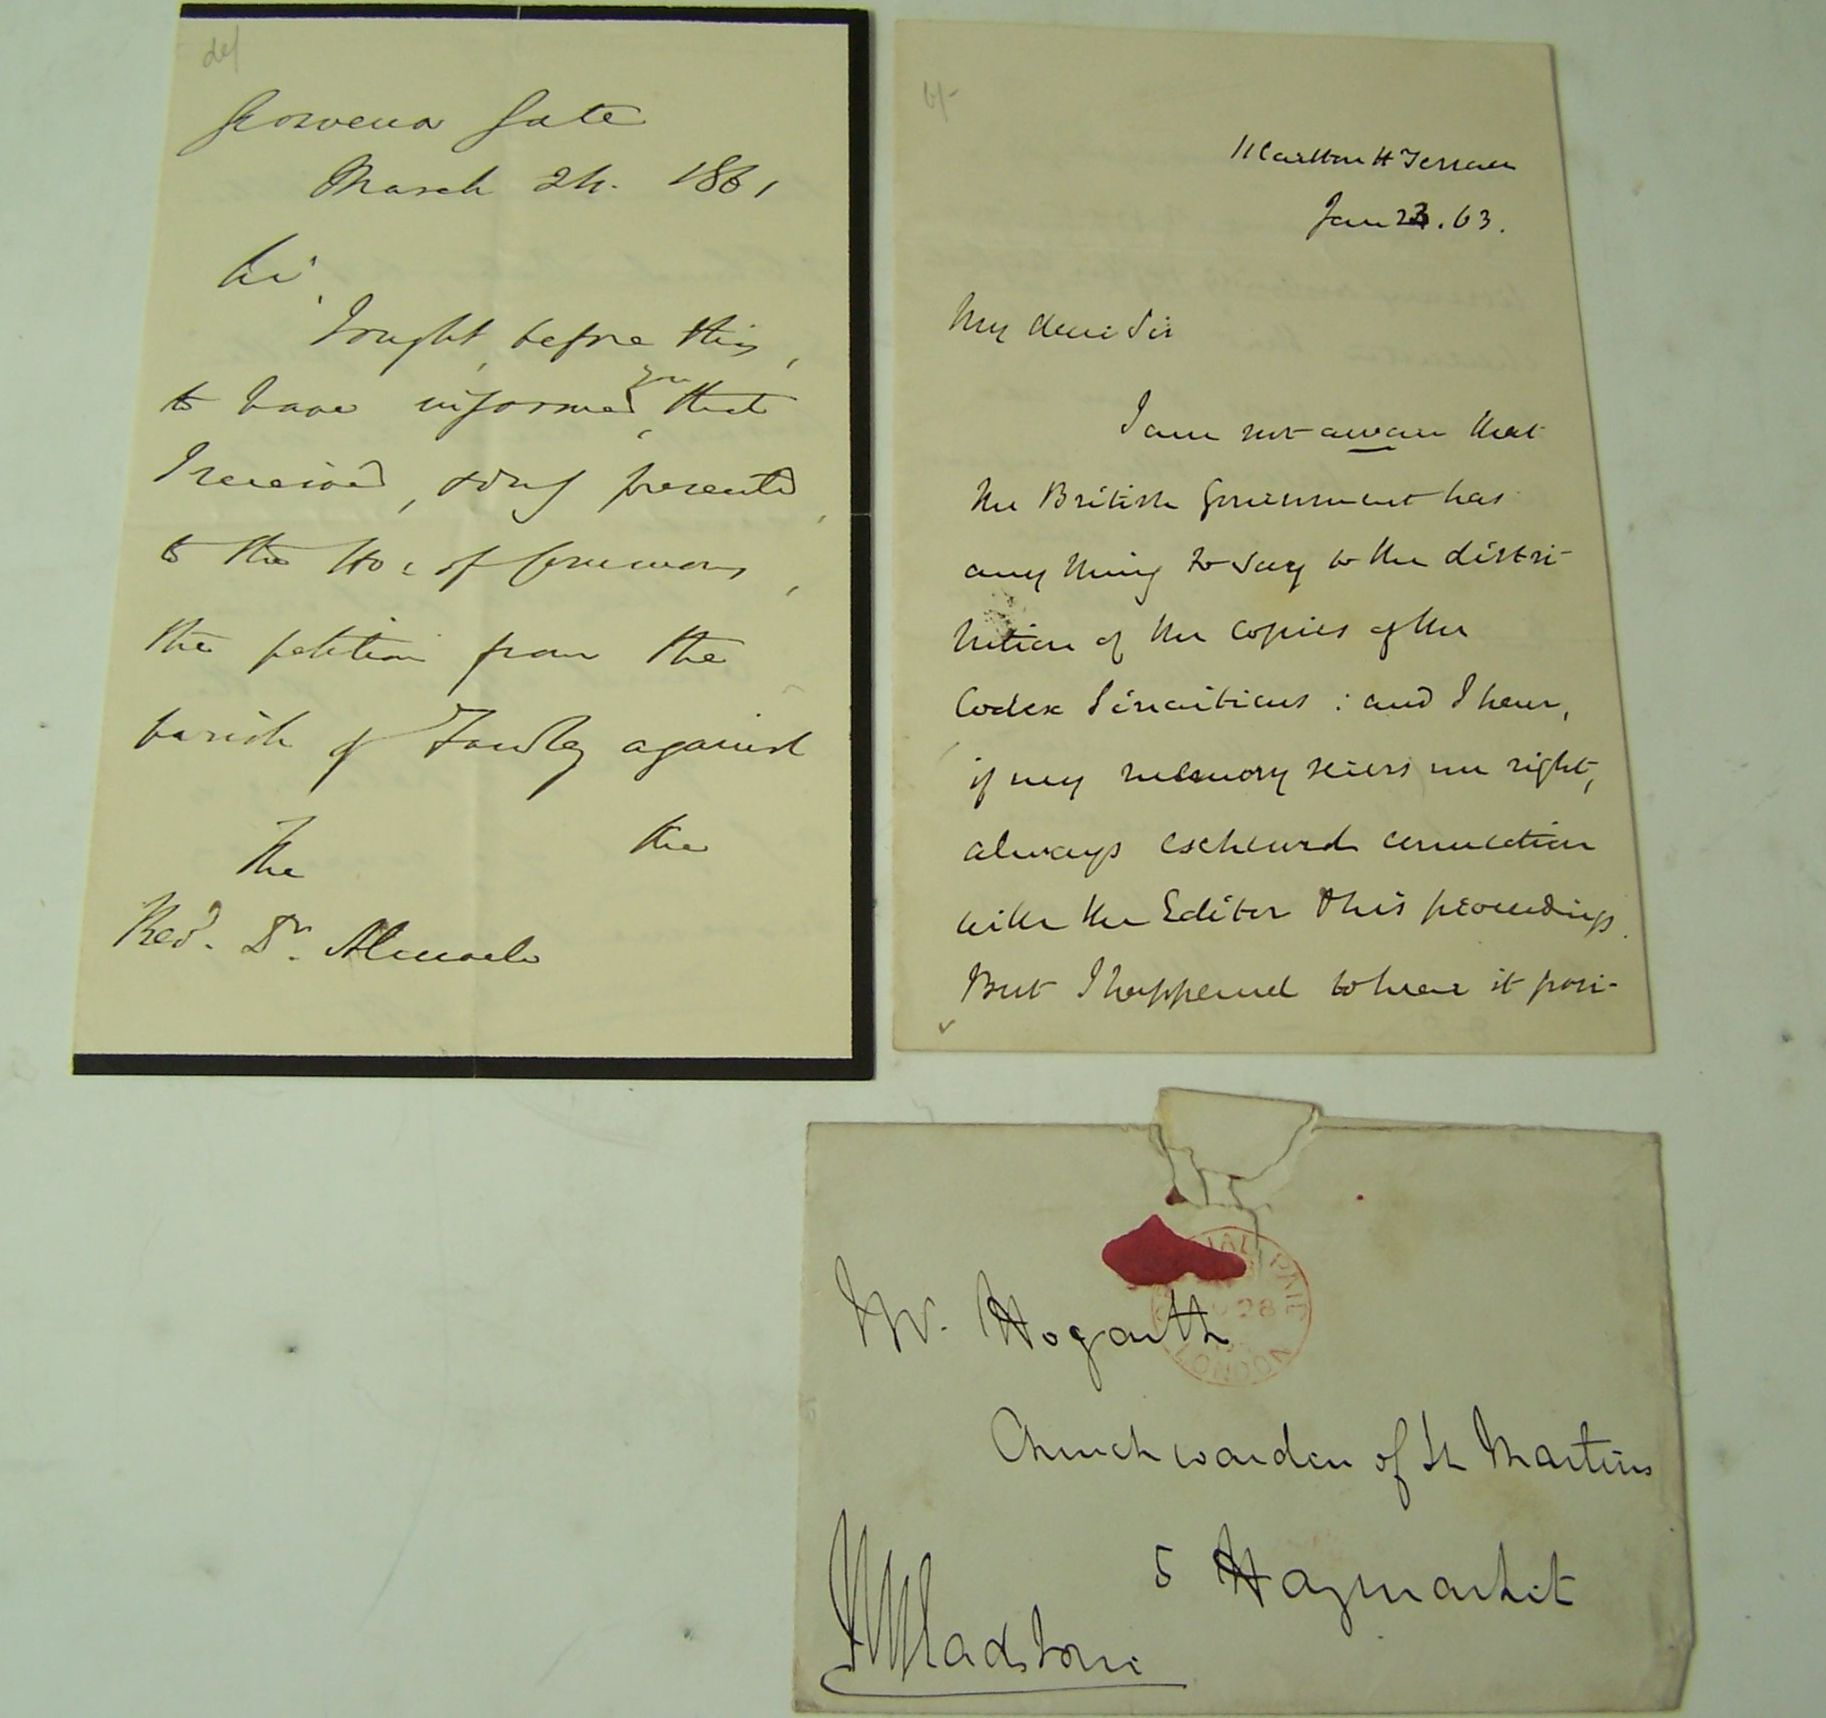 Grosvenor Gate
March 24. 1861
Sir,
I ought, before this,
to have informed you that
I received, & duly presented,
to the Ho: of Commons,
the petition from the
parish of Fawley against
the
The
Revd. Dr.
11 Carlton H Terrace
Jan 23. 63.
My dear Sir
I am not aware that
the British Government has
any thing to say to the distri-
bution of the copies of the
Codex Sinaiticus: and I hear,
if my memory serves me right,
always eschewed connection
with the Editor & his proceedings.
But I happened to hear it posi-
PAID
28
LONDON
Mr. Hogarth
Churchwarden of St Martins
5 Haymarket
WGladstone